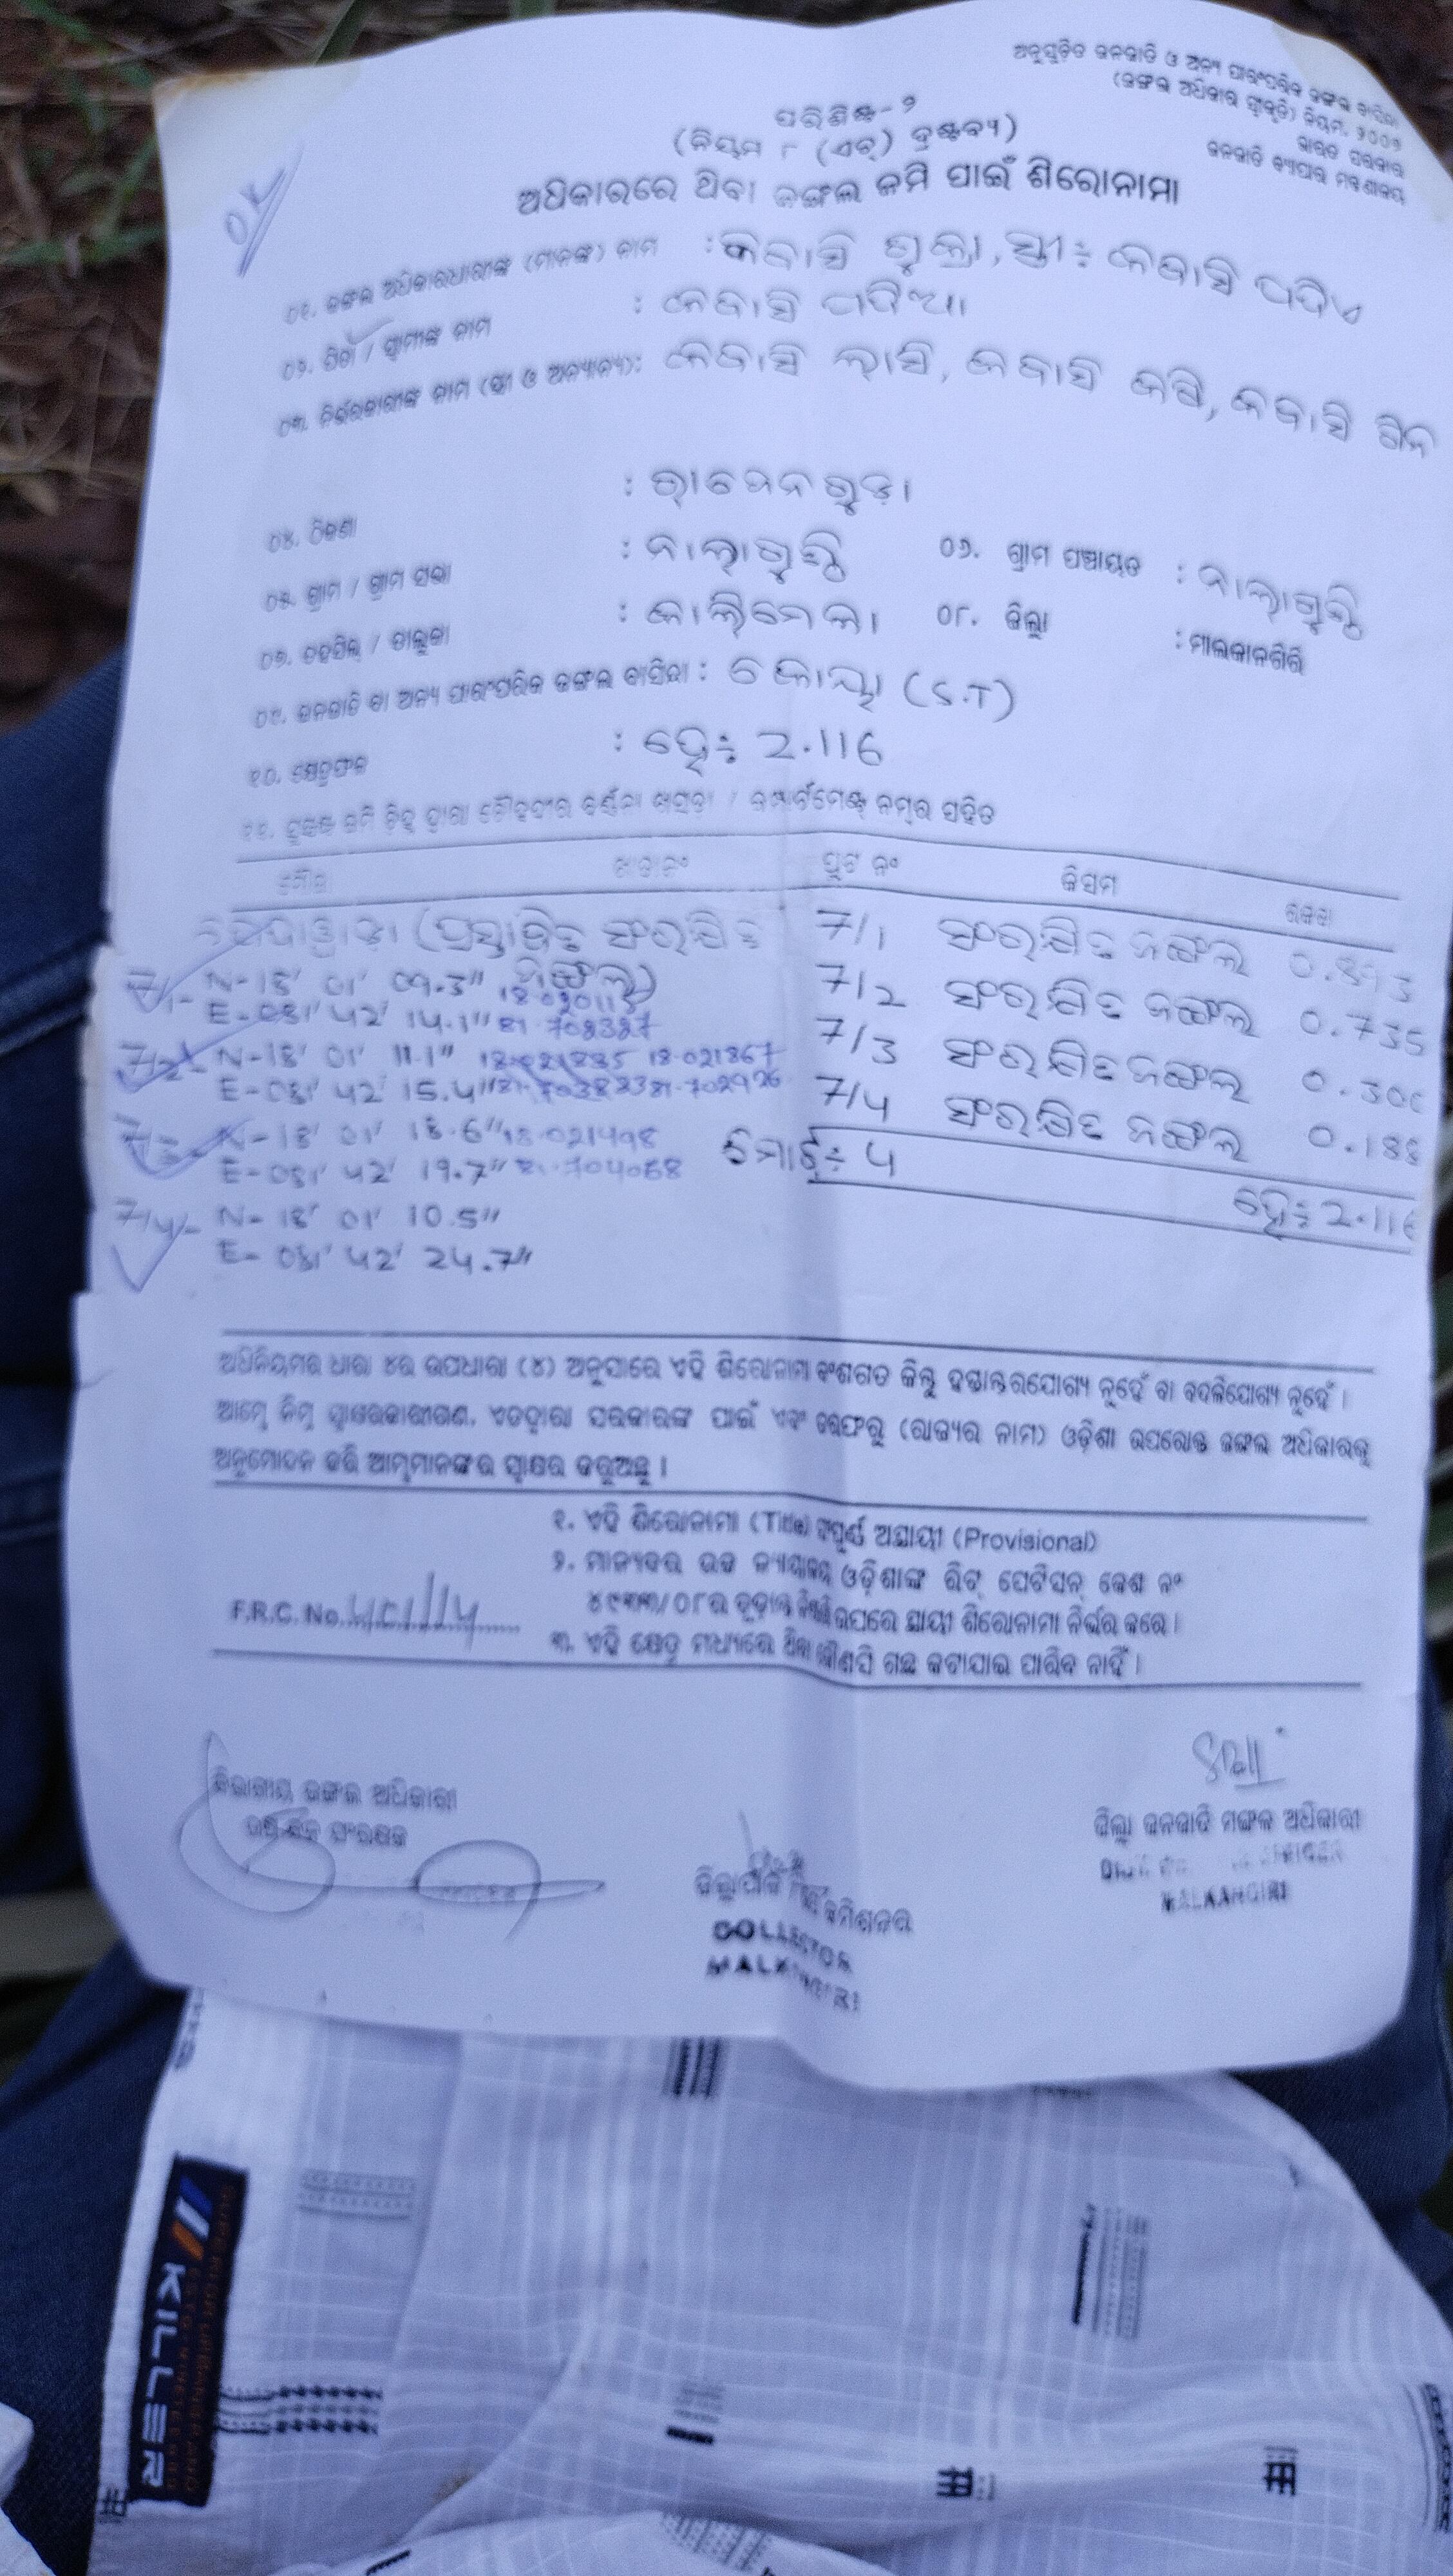 ଅନୁସୂଚିତ ଜନଜାତି ଓ ଅନ୍ୟ ପାରଂପରିକ ଜଙ୍ଗଲ ବାସିନ୍ଦା
(ଜଙ୍ଗଲ ଅଧିକାର ସ୍ୱୀକୃତି) ନିୟମ, ୨୦୦୭
ଭାରତ ସରକାର
ଜନଜାତି ବ୍ୟାପାର ମନ୍ତ୍ରଣାଳୟ
ପରିଶିଷ୍ଟ-୨
(ନିୟମ ୮ (ଏଚ୍) ଦ୍ରଷ୍ଟବ୍ୟ)
ଅଧିକାରରେ ଥିବା ଜଙ୍ଗଲ ଜମି ପାଇଁ ଶିରୋନାମା
OK
୦୧. ଜଙ୍ଗଲ ଅଧିକାରଧାରୀଙ୍କ (ମାନଙ୍କ) ନାମ : କବାସି ମୁକ୍ତା, ସ୍ତ୍ରୀ: କବାସି
୦୨. ପିତା / ସ୍ୱାମୀଙ୍କ ନାମ : କବାସି
୦୩. ନିର୍ଭରକାରୀଙ୍କ ନାମ (ସ୍ତ୍ରୀ ଓ ଅନ୍ୟାନ୍ୟ): କବାସି ଲାସି, କବାସି କଷି, କବାସି
୦୪. ଠିକଣା :
୦୫. ଗ୍ରାମ / ଗ୍ରାମ ସଭା : ନାଲାଗୁଣ୍ଠି ୦୬. ଗ୍ରାମ ପଞ୍ଚାୟତ : ନାଲାଗୁଣ୍ଠି
୦୭. ତହସିଲ / ତାଲୁକା : କାଲିମେଲା ୦୮. ଜିଲ୍ଲା : ମାଲକାନଗିରି
୦୯. ଜନଜାତି ବା ଅନ୍ୟ ପାରଂପରିକ ଜଙ୍ଗଲ ବାସିନ୍ଦା : କୋୟା (S.T)
୧୦. କ୍ଷେତ୍ରଫଳ : ହେ: 2.116
୧୧. ଜମି ଚିହ୍ନ ଦ୍ୱାରା ଚୌହଦ୍ଦୀର ବର୍ଣ୍ଣନା ଖସଡ଼ା / କମ୍ପାର୍ଟମେଣ୍ଟ ନମ୍ବର ସହିତ
ମୌଜା ଖାତା ନଂ ପ୍ଲଟ ନଂ କିସମ ରକବା
(ପ୍ରସ୍ତାବିତ ସଂରକ୍ଷିତ ଜଙ୍ଗଲ) 7/1 ସଂରକ୍ଷିତ ଜଙ୍ଗଲ 0.893
7/1- N-18' 01' 09.3"
E-081' 42' 14.1" 81.708387
7/2 ସଂରକ୍ଷିତ ଜଙ୍ଗଲ 0.735
7/2- N-18' 01' 11.1" 18.021867
E-081' 42' 15.4" 81.702926
7/3 ସଂରକ୍ଷିତ ଜଙ୍ଗଲ 0.300
7/3- N-18' 01' 18.6" 18.021498
E-081' 42' 19.7" 81.704068
7/4 ସଂରକ୍ଷିତ ଜଙ୍ଗଲ 0.188
ମୋଟ: 4 ହେ: 2.116
7/4- N-18' 01' 10.5"
E-081' 42' 24.7"
ଅଧିନିୟମର ଧାରା ୪ର ଉପଧାରା (୪) ଅନୁସାରେ ଏହି ଶିରୋନାମା ବଂଶଗତ କିନ୍ତୁ ହସ୍ତାନ୍ତରଯୋଗ୍ୟ ନୁହେଁ ବା ବଦଳିଯୋଗ୍ୟ ନୁହେଁ ।
ଆମ୍ଭେ ନିମ୍ନ ସ୍ୱାକ୍ଷରକାରୀଗଣ, ଏତଦ୍ୱାରା ସରକାରଙ୍କ ପାଇଁ ଏବଂ ତରଫରୁ (ରାଜ୍ୟର ନାମ) ଓଡ଼ିଶା ଉପରୋକ୍ତ ଜଙ୍ଗଲ ଅଧିକାରକୁ
ଅନୁମୋଦନ କରି ଆମ୍ଭମାନଙ୍କର ସ୍ୱାକ୍ଷର କରୁଅଛୁ ।
୧. ଏହି ଶିରୋନାମା (Title) ସଂପୂର୍ଣ୍ଣ ଅସ୍ଥାୟୀ (Provisional)
୨. ମାନ୍ୟବର ଉଚ୍ଚ ନ୍ୟାୟାଳୟ ଓଡ଼ିଶାଙ୍କ ରିଟ୍ ପେଟିସନ୍ କେଶ ନଂ
୪୯୩୩/୦୮ର ଚୂଡ଼ାନ୍ତ ନିଷ୍ପତ୍ତି ଉପରେ ସ୍ଥାୟୀ ଶିରୋନାମା ନିର୍ଭର କରେ ।
F.R.C. No.
୩. ଏହି କ୍ଷେତ୍ର ମଧ୍ୟରେ ଥିବା କୌଣସି ଗଛ କଟାଯାଇ ପାରିବ ନାହିଁ ।
ବିଭାଗୀୟ ଜଙ୍ଗଲ ଅଧିକାରୀ
ସଂରକ୍ଷକ
ଜିଲ୍ଲା ଜନଜାତି ମଙ୍ଗଳ ଅଧିକାରୀ
MALKANGIRI
COLLECTOR
MALKANGIRI
KILLER